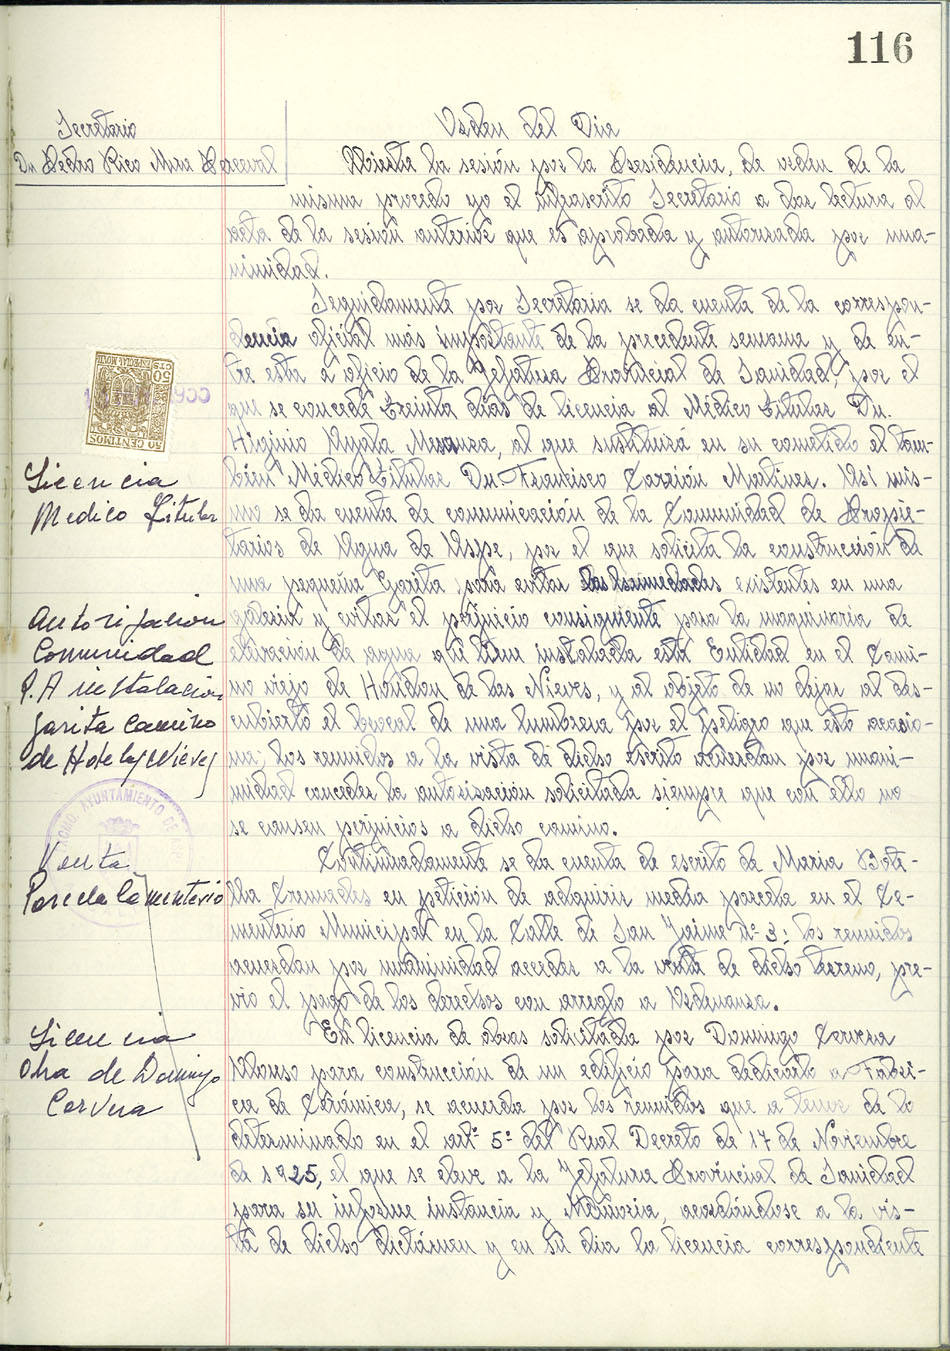 116
Secretario
Dn Pedro Rico Mira Perceval
Orden del Dia
Abierta la sesión por la Presidencia, de orden de la
misma procedo yo el infrascrito Secretario a dar lectura al
acta de la sesión anterior que es aprobada y autorizada por una-
nimidad.
Seguidamente por Secretaria se da cuenta de la correspon-
dencia oficial más importante de la precedente semana y de en-
tre esta a oficio de la Jefatura Provincial de Sanidad, por el
que se concede treinta días de licencia al Médico titular Dn.
Higinio, al que sustituirá en su cometido el tam-
bién Médico titular Dn. Francisco Carrión Martinez. Asi mis-
mo se da cuenta de comunicación de la Comunidad de Propie-
tarios de Agua de Aspe, por el que solicita la construcción de
una pequeña Garita para evitar las humedades existentes en una
galeria y evitar el perjuicio consiguiente para la maquinaria de
elevación de agua que tiene instalada esta Entidad en el Cami-
no viejo de Hondon de las Nieves, y al objeto de no dejar al des-
cubierto el bocal de una lumbrera por el peligro que esto ocasio-
na; los reunidos a la vista de dicho escrito acuerdan por unani-
midad conceder la autorización solicitada siempre que con ello no
se causen perjuicios a dicho camino.
Continuadamente se da cuenta de escrito de Maria Bote-
lla Cremades en petición de adquirir media parcela en el Ce-
menterio Municipal en la Calle de San Jaime nº 3: los reunidos
acuerdan por unanimidad acceder a la venta de dicho terreno, pre-
vio el pago de los derechos con arreglo a Ordenanza.
En licencia de obras solicitada por Domingo Cervera
Alonso para construcción de un edificio para dedicarlo a Fabri-
ca de Cerámica, se acuerda por los reunidos que a tenor de lo
determinado en el artº 5º del Real Decreto de 17 de Noviembre
de 1925, el que se eleve a la Jefatura Provincial de Sanidad
para su informe instancia y Memoria, acordándose a la vis-
ta de dicho dictámen y en su dia la licencia correspondiente
50 CTS
ESPECIAL MOVIL
50 CENTIMOS
Licencia
Medico Titular
Autorizacion
Comunidad
P.A instalacion
garita camino
de H de las Nieves
AYUNTAMIENTO DE
Venta
Parcela Cementerio
Licencia
Obra de Domingo
Cervera